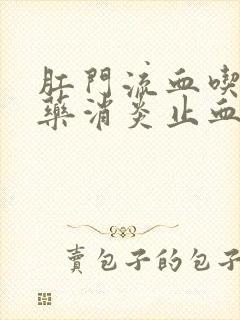 肛門流血喫
藥消炎止血
賣包子的包子